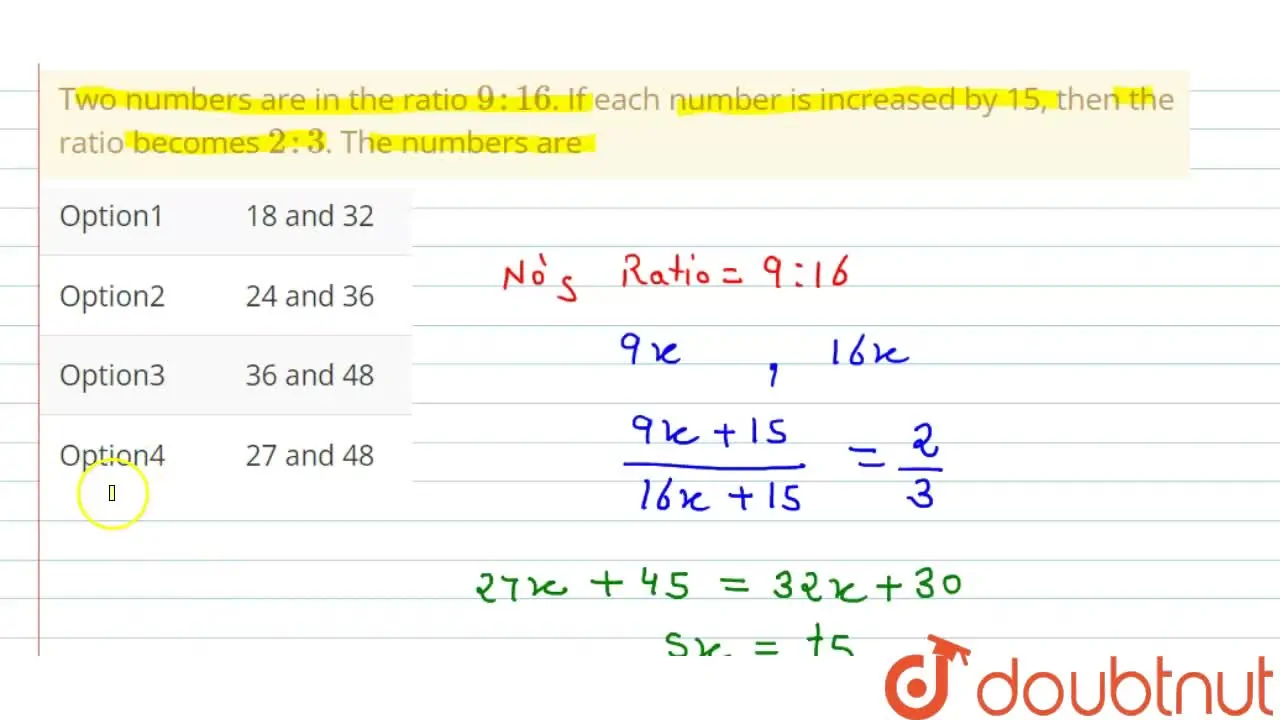 Two numbers are in the ratio 9 : 16. If each number is increased by 15, then the
ratio becomes 2 : 3. The numbers are
Option1 18 and 32
Option2 24 and 36
Option3 36 and 48
Option4 27 and 48
No's Ratio = 9:16
9x , 16x
9x + 15 / 16x + 15 = 2 / 3
27x + 45 = 32x + 30
5x = 15
doubtnut